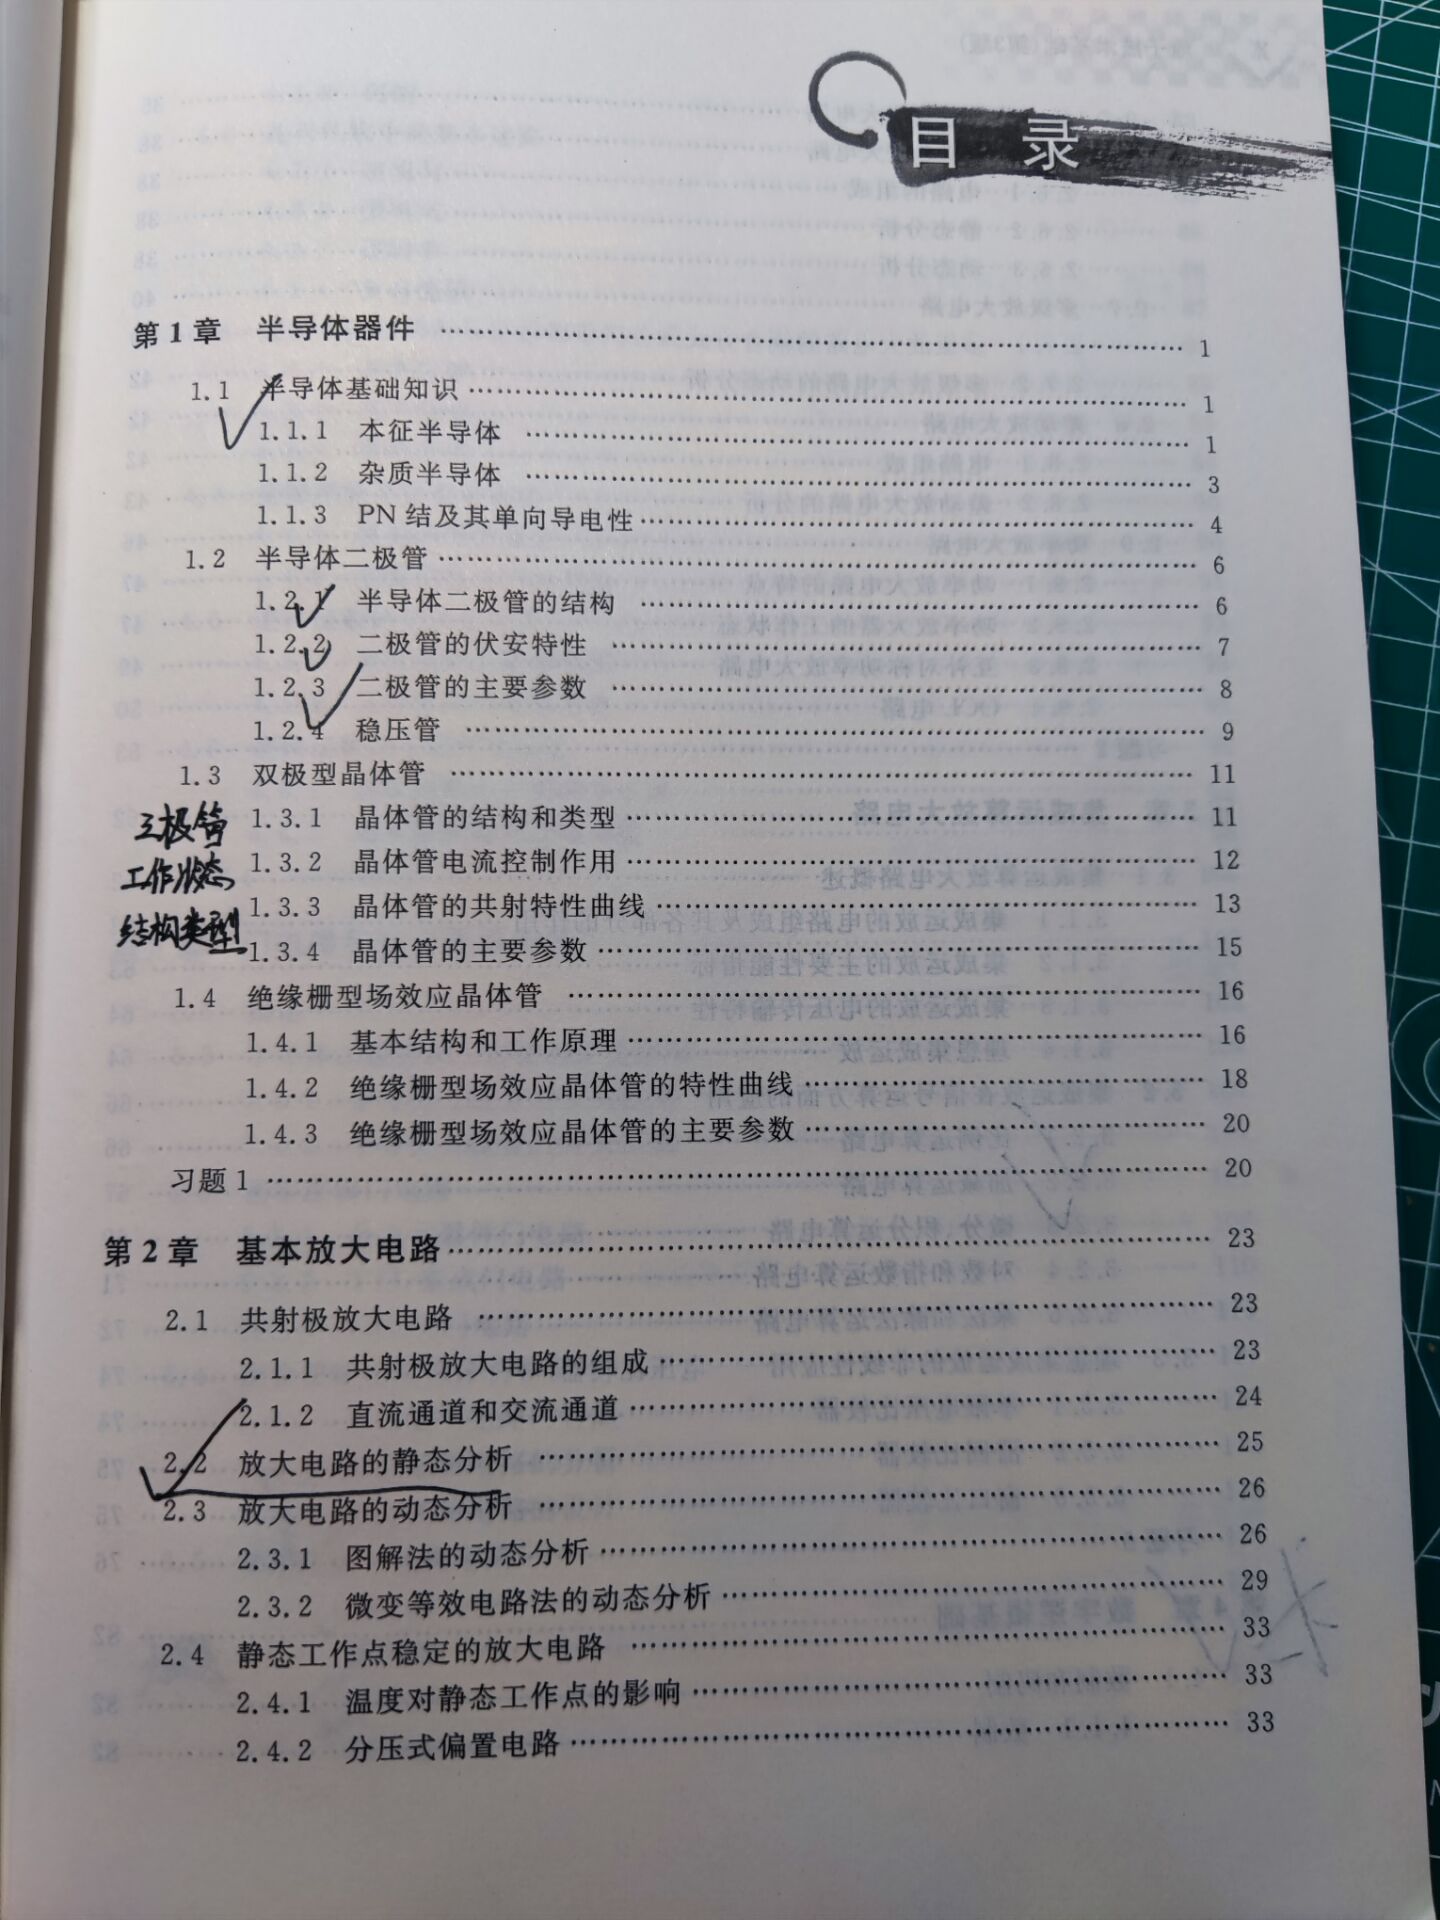 目 录
第1章 半导体器件 …… 1
1.1 半导体基础知识 …… 1
1.1.1 本征半导体 …… 1
1.1.2 杂质半导体 …… 3
1.1.3 PN结及其单向导电性 …… 4
1.2 半导体二极管 …… 6
1.2.1 半导体二极管的结构 …… 6
1.2.2 二极管的伏安特性 …… 7
1.2.3 二极管的主要参数 …… 8
1.2.4 稳压管 …… 9
1.3 双极型晶体管 …… 11
三极管
1.3.1 晶体管的结构和类型 …… 11
工作状态
1.3.2 晶体管电流控制作用 …… 12
结构类型
1.3.3 晶体管的共射特性曲线 …… 13
1.3.4 晶体管的主要参数 …… 15
1.4 绝缘栅型场效应晶体管 …… 16
1.4.1 基本结构和工作原理 …… 16
1.4.2 绝缘栅型场效应晶体管的特性曲线 …… 18
1.4.3 绝缘栅型场效应晶体管的主要参数 …… 20
习题1 …… 20
第2章 基本放大电路 …… 23
2.1 共射极放大电路 …… 23
2.1.1 共射极放大电路的组成 …… 23
2.1.2 直流通道和交流通道 …… 24
2.2 放大电路的静态分析 …… 25
2.3 放大电路的动态分析 …… 26
2.3.1 图解法的动态分析 …… 26
2.3.2 微变等效电路法的动态分析 …… 29
2.4 静态工作点稳定的放大电路 …… 33
2.4.1 温度对静态工作点的影响 …… 33
2.4.2 分压式偏置电路 …… 33